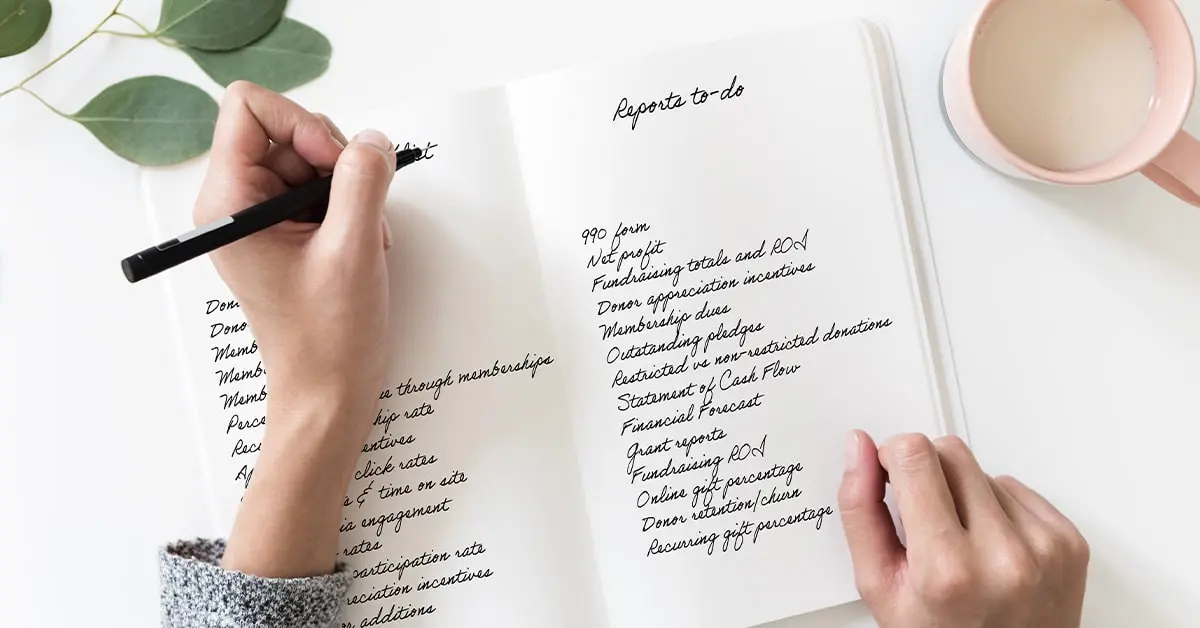 through memberships
rate
click rates
& time on site
engagement
rates
participation rate
incentives
additions
Reports to-do
990 form
Net profit
Fundraising totals and ROI
Donor appreciation incentives
Membership dues
Outstanding pledges
Restricted vs non-restricted donations
Statement of Cash Flow
Financial Forecast
Grant reports
Fundraising ROI
Online gift percentage
Donor retention/churn
Recurring gift percentage